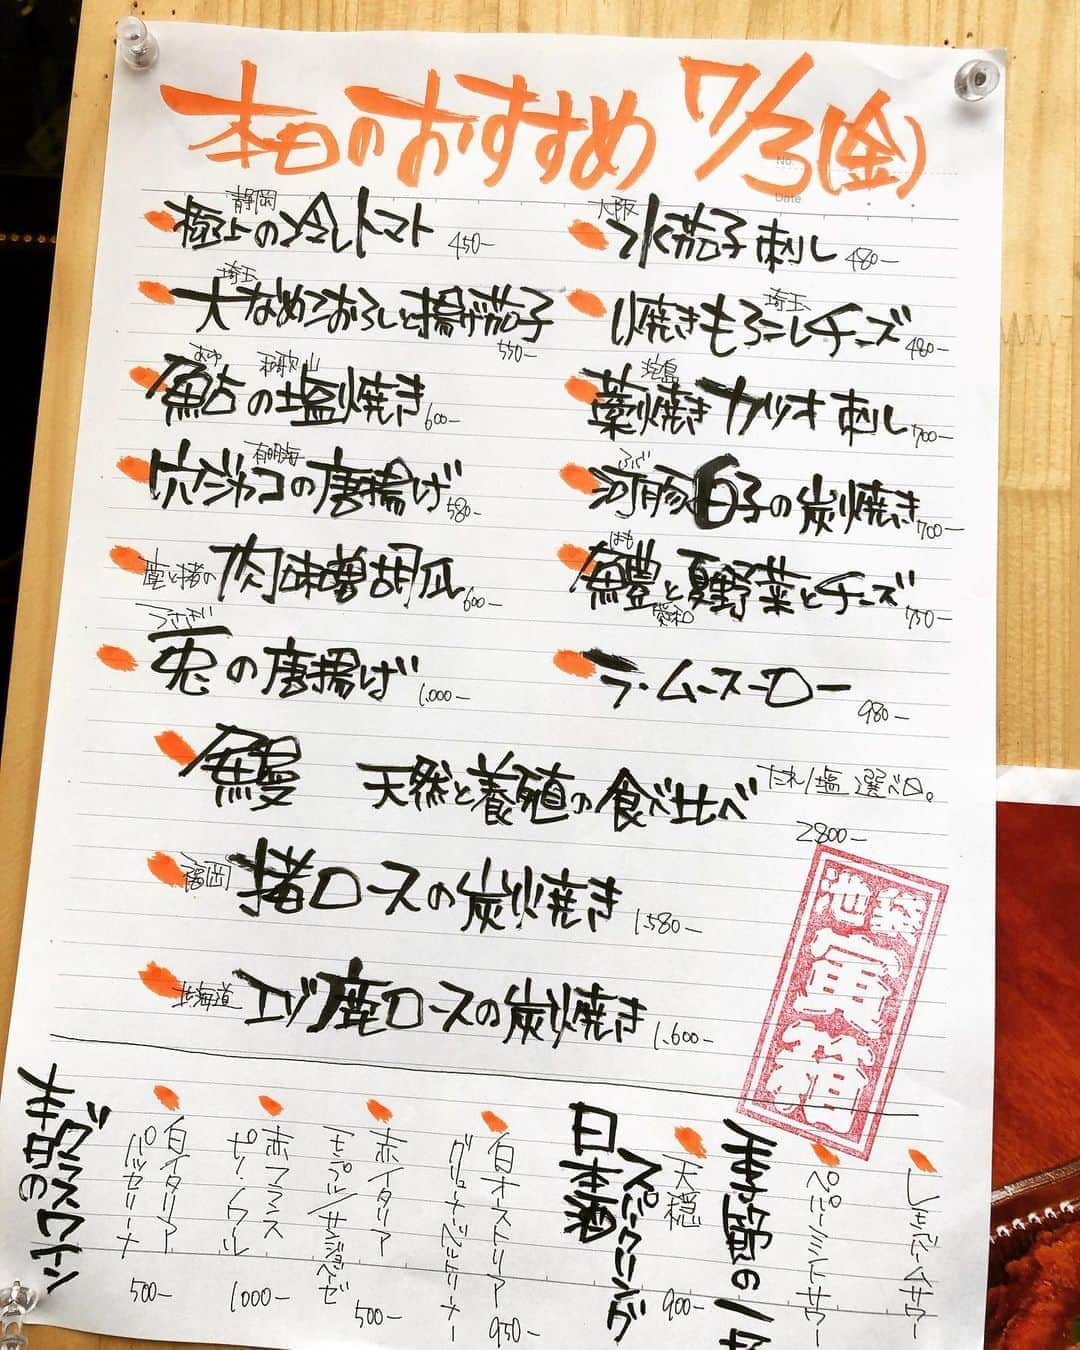 本日のおすすめ 7/3(金)
静岡
極上の冷しトマト 450-
大阪
水茄子刺し 480-
埼玉
大なめこおろしと揚げ茄子 550-
埼玉
焼きもろこしチーズ 480-
あゆ 和歌山
鮎の塩焼き 600-
藁焼きカツオ刺し 700-
有明海
穴ジャコの唐揚げ 580-
ふぐ
河豚白子の炭焼き 700-
鹿と猪の肉味噌胡瓜 600-
はも
鱧と夏野菜とチーズ 750-
愛知
うさぎ
兎の唐揚げ 1,000-
ラ・ムースーロー 980-
鰻 天然と養殖の食べ比べ たれ/塩 選べ日。
2800-
福岡 猪ロースの炭火焼き 1,580-
北海道 エゾ鹿ロースの炭火焼き 1,600-
池袋
寅箱
本日の
グラスワイン
白イタリア
パッセリーナ
500-
赤フランス
ピノノワール
1000-
赤イタリア
モンテプル/サンジョベーゼ
500-
白オーストリア
グリューナーベルトリーナー
950-
日本酒
スパークリング
天穏
900-
季節の一
ペパーミントサワー
レモンバームサワー
No.
Date